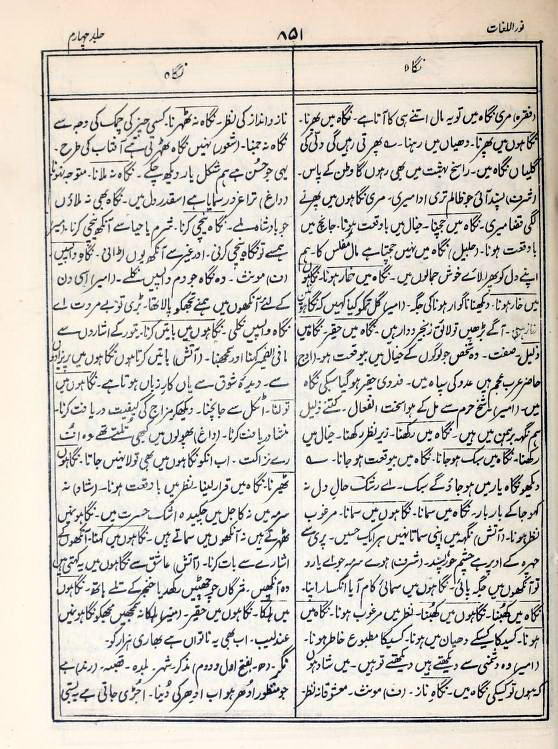 نور اللغات
۸۵۱
جلد چہارم
نگاہ
نگاہ
(فقرہ) مری نگاہ میں تو یہ مال اتنے ہی کا آتا ہے۔ نگاہ میں پھرنا۔
نگاہوں میں پھرنا۔ دھیان میں رہنا۔ ے پھرتی رہیں گی دتی کی
گلیاں نگاہ میں۔ راسخ بہشت میں بھی رہوں گا وطن کے پاس۔
(شرف) پیدا آئی جو ظالم تری او امیری۔ مری نگاہ میں پھرنے
لگی قضا میری۔ نگاہ میں جچنا۔ خیال میں باوقعت ہونا۔ جانچ میں
باوقعت ہونا۔ (جلیل) نگاہ میں نہیں جچتا ہے مال مفلس کا۔ ہم
اپنے دل کو پھیر لائے خوش جمالوں میں۔ نگاہ میں خار ہونا۔ نگاہوں
میں خار ہونا۔ دیکھنا ناگوار ہونا کی جگہ۔ (امیر) گل تجھکو کیا کہیں کہ نگاہوں
آگے بڑھیں تو لائق زنجیر و دار ہیں۔ نگاہ میں حقیر۔ نگاہ میں
ذلیل۔ صفت۔ وہ شخص جو لوگوں کے خیال میں بیوقعت ہو۔
حاضر عرب عجم ہیں عدو کی سپاہ میں۔ فدوی حقیر ہو گیا سب کی نگاہ
میں۔ (امیر) شیخ حرم سے مل کے ہوا سخت انفعال۔ کتنے ذلیل
ہم نگہ برہمن میں ہیں۔ نگاہ میں رکھنا۔ زیر نظر رکھنا۔ خیال میں
رکھنا۔ نگاہ میں سبک ہو جانا۔ نگاہ میں بیوقعت ہو جانا۔ ے
دیکھو نگاہ یار میں ہو جاؤ گے سبک۔ اے رشک حال دل نہ
کہو جا کے بار بار۔ نگاہ میں سمانا۔ نگاہوں میں سمانا۔ مرغوب
ہونا۔ (آتش) نگہ میں اپنی سماتا نہیں ہر ایک حسیں۔ پری سے
چہرہ کے اوپر ہے چشم حور پسند۔ (شرف) ہوے سرمہ جو اے یار
تو آنکھوں میں جگہ پائی۔ نگاہوں میں سمائی کام آیا انکسار اپنا۔
نگاہ میں کھبنا۔ نگاہوں میں کھبنا۔ نظر میں مرغوب ہونا۔ نگاہ میں
ہونا۔ کسی کا کسی کے دھیان میں ہونا۔ کسی کا مطبوع خاطر ہونا۔
(امیر) وہ دشمنی سے دیکھتے ہیں دیکھتے تو ہیں۔ میں شاد ہوں
کہ ہوں تو کسی کی نگاہ میں۔ نگاہ ناز۔ (ف) مونث۔ معشوقانہ نظر
ناز و انداز کی نظر۔ نگاہ نہ ٹھہرنا۔ کسی چیز کی چمک کی وجہ سے
نگاہ نہ جمنا۔ (شعور) نہیں نگاہ ٹھہرتی آفتاب کی طرح۔
یہی جو حسن ہے ہم شکل یار دیکھ چکے۔ نگاہ نہ ملانا۔ متوجہ نہ ہونا
(داغ) ترا غرور سمایا ہے اسقدر دل میں۔ نگاہ بھی نہ ملاؤں
جو بادشاہ ملے۔ نگاہ نیچی کرنا۔ شرم یا حیا سے آنکھ نیچی کرنا۔ (میر)
ہمسے تو نگاہ نیچی کرنی۔ اور غیر سے آنکھ یوں لڑانی۔ نگاہ واپسیں
(ف) مونث۔ وہ نگاہ جو دم واپسیں نکلے۔ (امیر) اسی دن
کے لئے آنکھوں میں ہمنے تجھکو پالا تھا۔ بڑی تو بے مروت اے
نگاہ واپسیں نکلی۔ نگاہوں میں باتیں کرنا۔ تیور کے اشاروں سے
مافی الضمیر کہنا اور سمجھنا۔ (آتش) باتیں کرتا ہوں نگاہوں میں پریزادوں
سے۔ دیدۂ شوق سے یاں کار زباں ہوتا ہے۔ نگاہوں میں
تولنا۔ اٹکل سے جانچنا۔ دیکھکر مزاج کی کیفیت دریافت کرنا۔
منشا دریافت کرنا۔ (داغ) پھولوں میں کبھی تلتے تھے وہ اف
رے نزاکت۔ اب انکو نگاہوں میں بھی تولا نہیں جاتا۔ نگاہوں
ٹھیرنا۔ نگاہ میں قرار لینا۔ نظر میں باوقعت ہونا۔ (شاد) نہ
سرمہ میں نہ کاجل میں چکیدہ اشک حسرت ہیں۔ نگاہوں میں
ٹھہرتے ہیں نہ آنکھوں میں سماتے ہیں۔ نگاہوں میں کہنا۔ آنکھوں کے
اشارے سے بات کرنا۔ (آتش) عاشق سے نگاہوں میں یہ کہتی ہیں
وہ آنکھیں۔ مژگاں جو چھیڑیں رکھدیا خنجر کے تلے ہاتھ۔ نگاہوں
میں ہلکا۔ نگاہوں میں حقیر۔ (منیر) ہلکا نہ سمجھیں مجھکو نگاہوں میں
عندلیب۔ اب بھی یہ ناتواں ہے بھاری ہزار کو۔
نگر۔ (ھ۔ بفتح اول و دوم) مذکر۔ شہر۔ بلدہ۔ قصبہ۔ (رند) ہے
جو منظور ادھر ہو اب ادھر کی دنیا۔ اجڑی جاتی ہے بستی